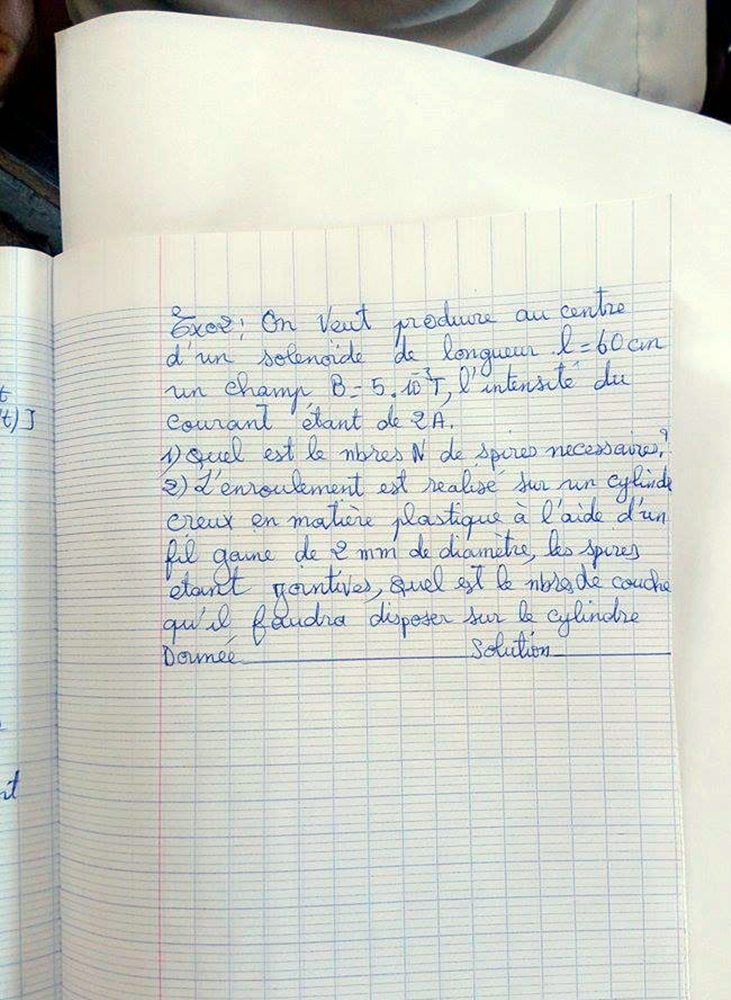 Exo2: On Veut produire au centre
d'un solenoïde de longueur l=60cm
un champ B=5.10⁻³T, l'intensité du
courant étant de 2A.
1) Quel est le nbres N de spires necessaires?
2) L'enroulement est realisé sur un cylinde
creux en matière plastique à l'aide d'un
fil gainé de 2 mm de diamètre, les spires
etant jointives, quel est le nbre de couche
qu'il faudra disposer sur le cylindre
Donnée Solution
t
t)J
it